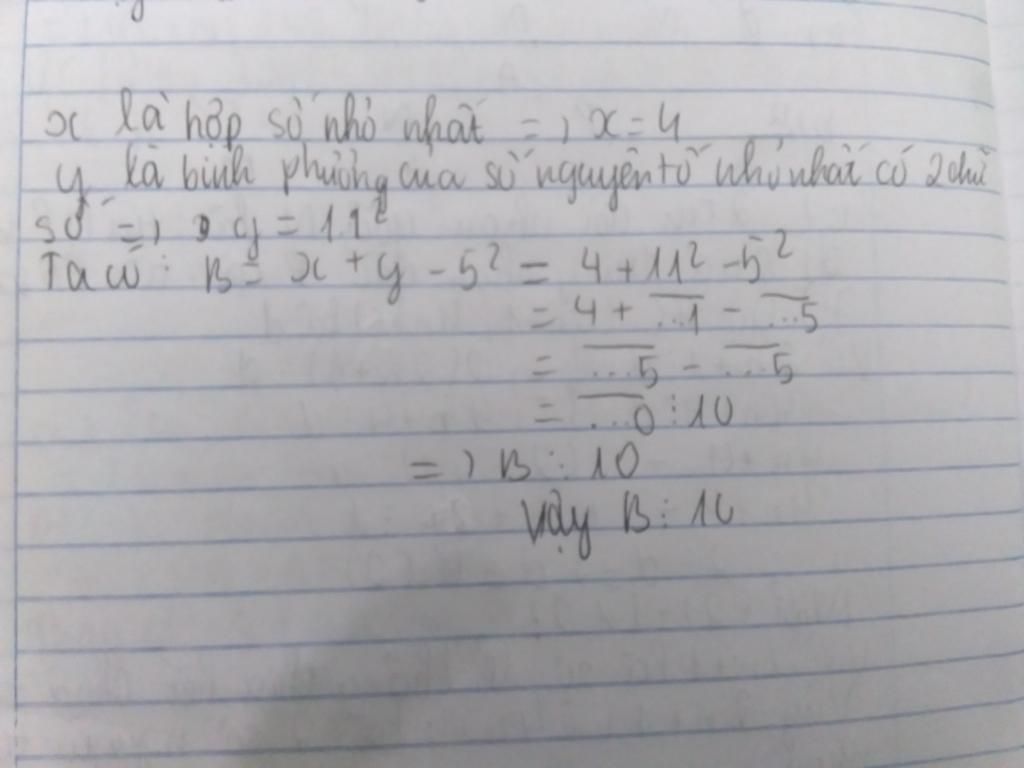 x là hợp số nhỏ nhất => x = 4
y là bình phương của số nguyên tố nhỏ nhất có 2 chữ
số => y = 11²
Ta có : B = x + y - 5² = 4 + 11² - 5²
= 4 + \overline{...1} - \overline{...5}
= \overline{...5} - \overline{...5}
= \overline{...0} ⋮ 10
=> B ⋮ 10
Vậy B ⋮ 10